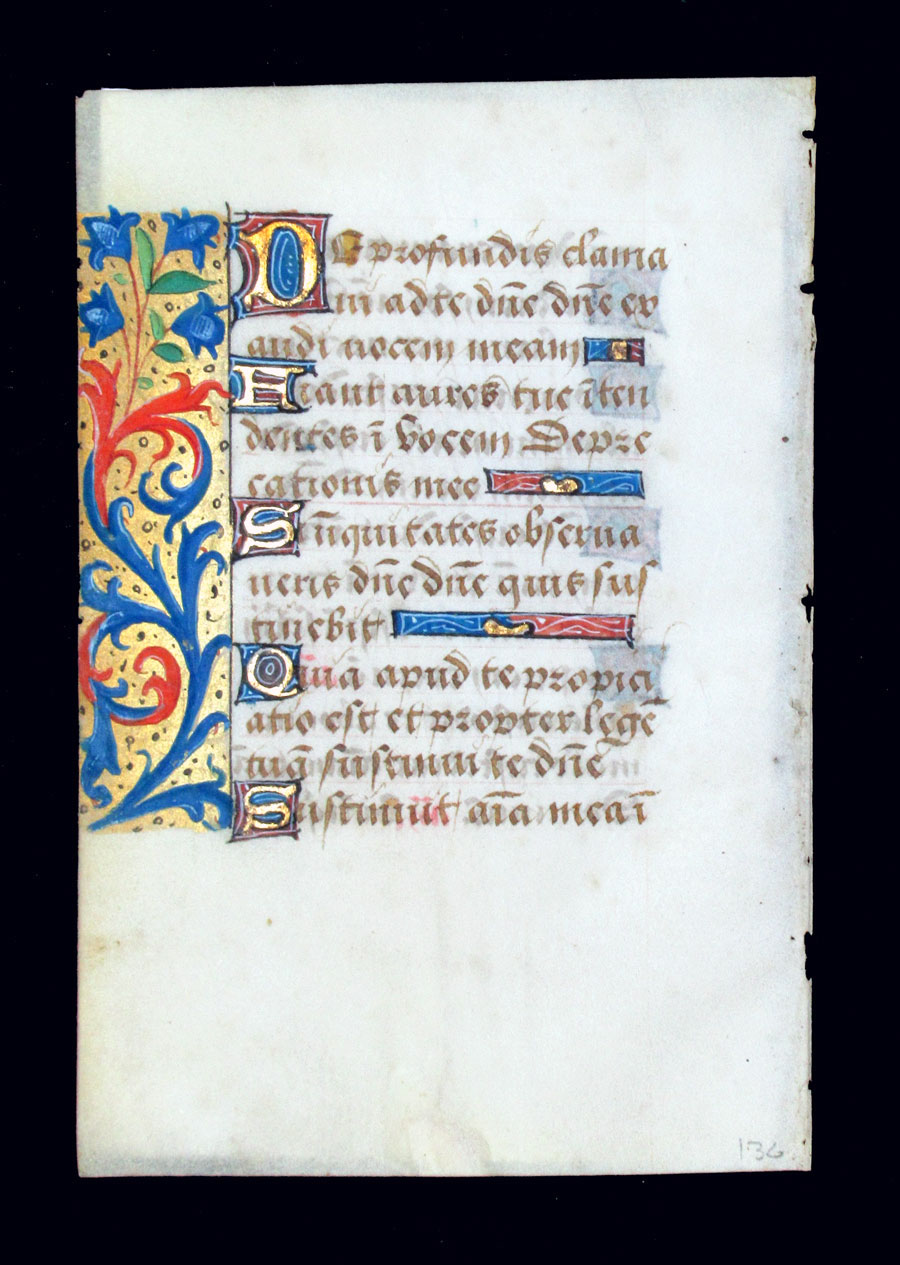 DE profundis clama
ui ad te dn̄e dn̄e ex
audi uocem meam
Fiant aures tue īten
dentes ī vocem Depre
cationis mee
Si īiquitates obserua
ueris dn̄e dn̄e quis sus
tinebit
Quia apud te propici
atio est et propter legē
tuā sustinui te dn̄e
Sustinuit aīa mea ī
136